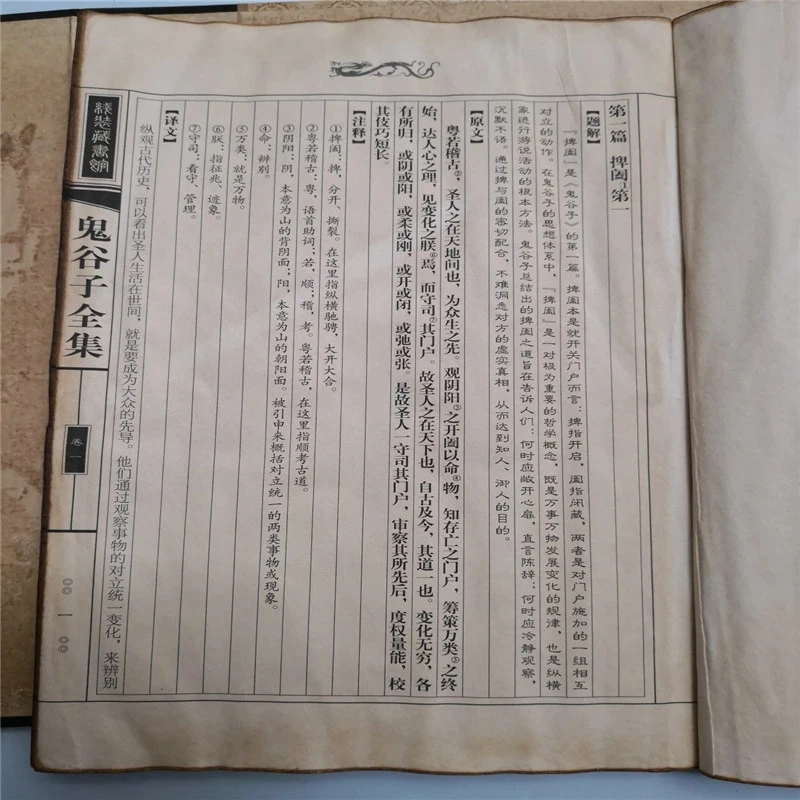 第一篇 捭阖①第一
【题解】
『捭阖』是《鬼谷子》的第一篇。捭阖本是就开关门户而言：捭指开启，阖指闭藏，两者是对门户施加的一组相互
对立的动作。在鬼谷子的思想体系中，『捭阖』是一对极为重要的哲学概念，既是万事万物发展变化的规律，也是纵横
家进行游说活动的根本方法。鬼谷子总结出的捭阖之道旨在告诉人们：何时应敞开心扉，直言陈辞；何时应冷静观察，
沉默不语。通过捭与阖的密切配合，不难洞悉对方的虚实真相，从而达到知人、御人的目的。
【原文】
粤若稽古②，圣人之在天地间也，为众生之先。观阴阳③之开阖以命④物，知存亡之门户，筹策万类⑤之终
始，达人心之理，见变化之朕⑥焉，而守司⑦其门户。故圣人之在天下也，自古及今，其道一也。变化无穷，各
有所归，或阴或阳，或柔或刚，或开或闭，或弛或张。是故圣人一守司其门户，审察其所先后，度权量能，校
其伎巧短长。
【注释】
①捭阖：捭，分开、撕裂。在这里指纵横驰骋，大开大合。
②粤若稽古：粤，语首助词；若，顺；稽，考。粤若稽古，在这里指顺考古道。
③阴阳：阴，本意为山的背阴面；阳，本意为山的朝阳面。被引申来概括对立统一的两类事物或现象。
④命：辨别。
⑤万类：就是万物。
⑥朕：指征兆、迹象。
⑦守司：看守、管理。
【译文】
纵观古代历史，可以看出圣人生活在世间，就是要成为大众的先导。他们通过观察事物的对立统一变化，来辨别
线装藏书馆
鬼谷子全集
卷一
〇〇一〇〇